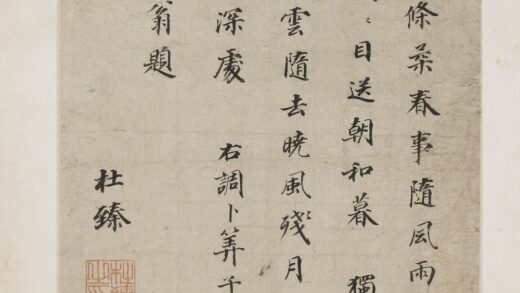 條桒春事隨風雨
目送朝和暮 獨
雲隨去曉風殘月
深處 右調卜筭子
翁題
杜臻